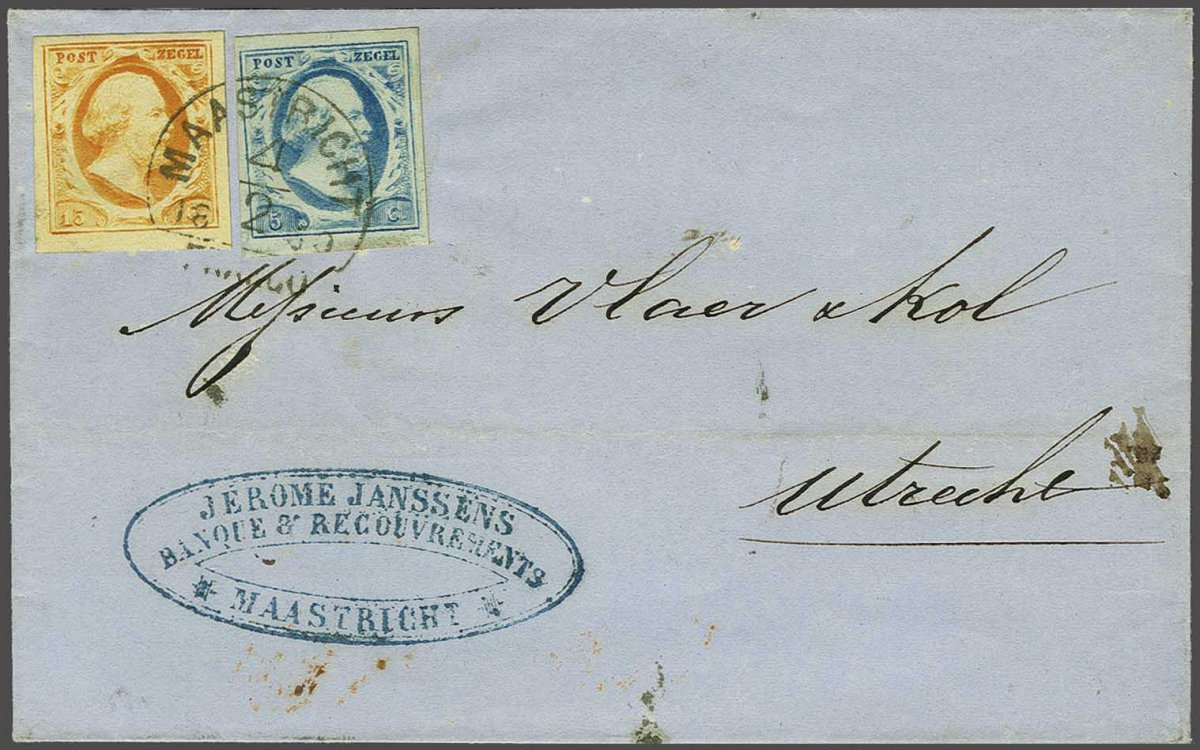 POST ZEGEL
15
POST ZEGEL
5 C.
MAASTRICHT
2/4
18
FRANCO
Messieurs Vlaer & Kol
Utrecht
JÉROME JANSSENS
BANQUE & RECOUVREMENTS
MAASTRICHT